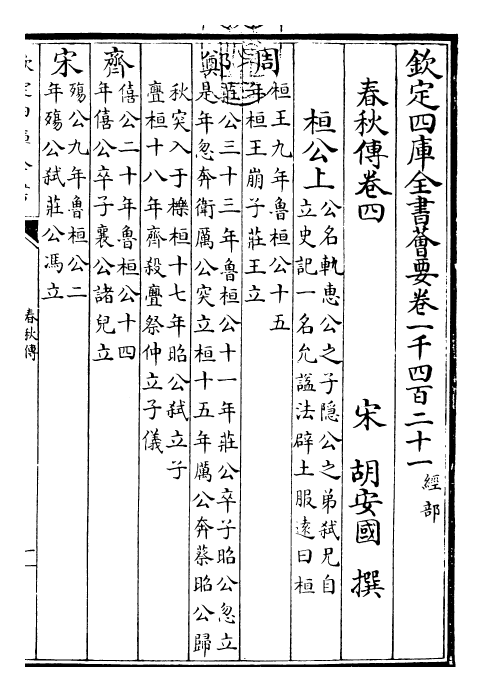 欽定四庫全書薈要卷一千四百二十一 經部
春秋傳卷四 宋 胡安國 撰
桓公上 公名軌惠公之子隱公之弟弒兄自
立史記一名允諡法辟土服遠曰桓
周 桓王九年魯桓公十五
年桓王崩子莊王立
鄭 莊公三十三年魯桓公十一年莊公卒子昭公忽立
是年忽奔衛厲公突立桓十五年厲公奔蔡昭公歸
秋突入于櫟桓十七年昭公弒立子
亹桓十八年齊殺亹祭仲立子儀
齊 僖公二十年魯桓公十四
年僖公卒子襄公諸兒立
宋 殤公九年魯桓公二
年殤公弒莊公馮立
春秋傳
一